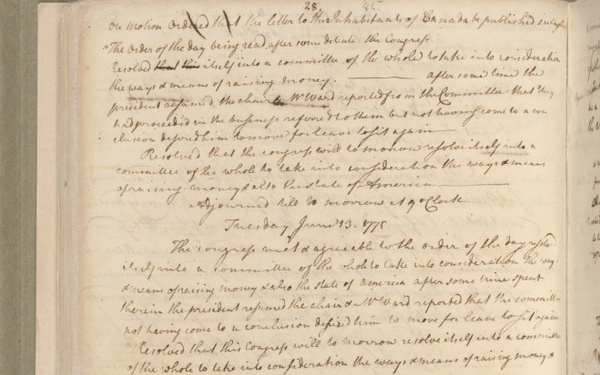 28.
On motion Ordered that the letter to the Inhabitants of Canada be published
The Order of the day being read after some debate the Congress
Resolved that this itself into a committee of the whole to take into consideration
the ways & means of raising money. after some time the
president resumed the chair & Mr Ward reported from the Committee that they
had proceeded in the business referred to them but not having come to a con
clusion desired him to move for leave to sit again
Resolved that the congress will to morrow resolve itself into a
committee of the whole to take into consideration the ways & means
of raising money & also the state of America
Adjourned till to morrow at 9 oClock
Tuesday June 13. 1775
The congress met & agreeable to the order of the day resolved
itself into a committee of the whole to take into consideration the ways
& means of raising money & also the state of america after some time spent
therein the president resumed the chair & Mr Ward reported that the committee
not having come to a conclusion desired him to move for leave to sit again
Resolved that this Congress will to morrow resolve itself into a committee
of the whole to take into consideration the ways & means of raising money &